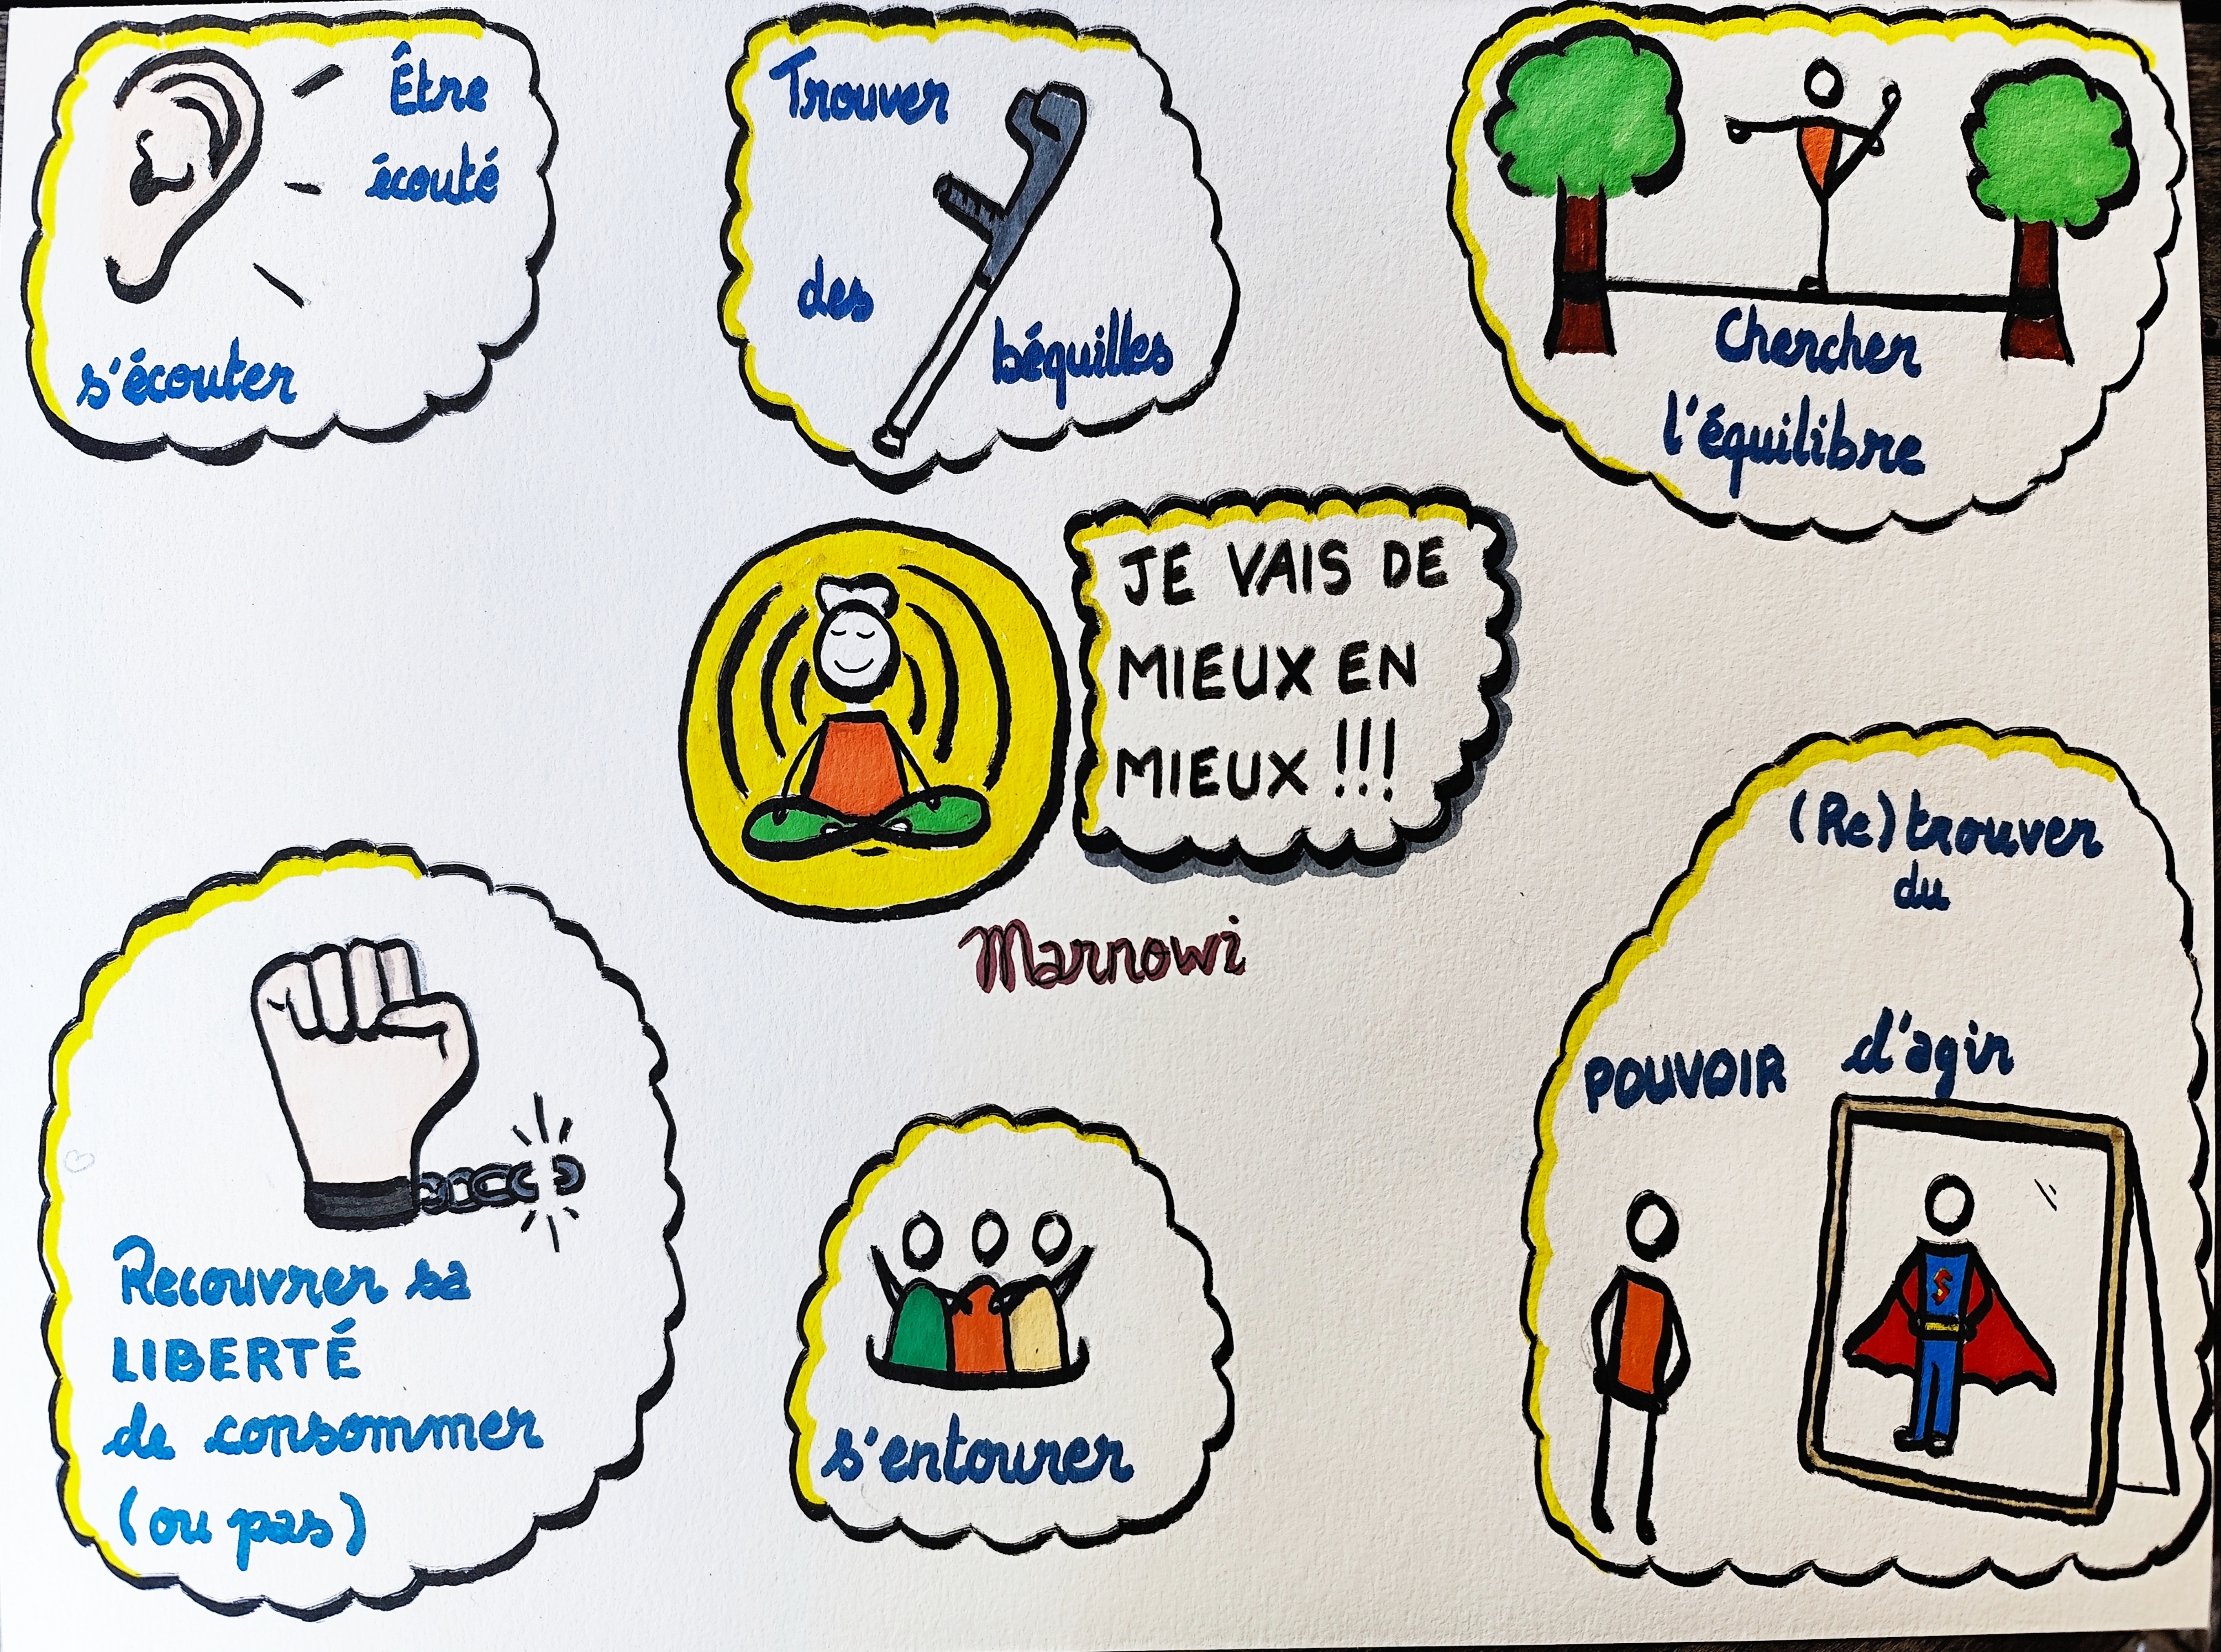 Être
écouté
s'écouter
Trouver
des
béquilles
Chercher
l'équilibre
JE VAIS DE
MIEUX EN
MIEUX !!!
Marnowi
(Re)trouver
du
POUVOIR d'agir
S
Recouvrer sa
LIBERTÉ
de consommer
(ou pas)
s'entourer